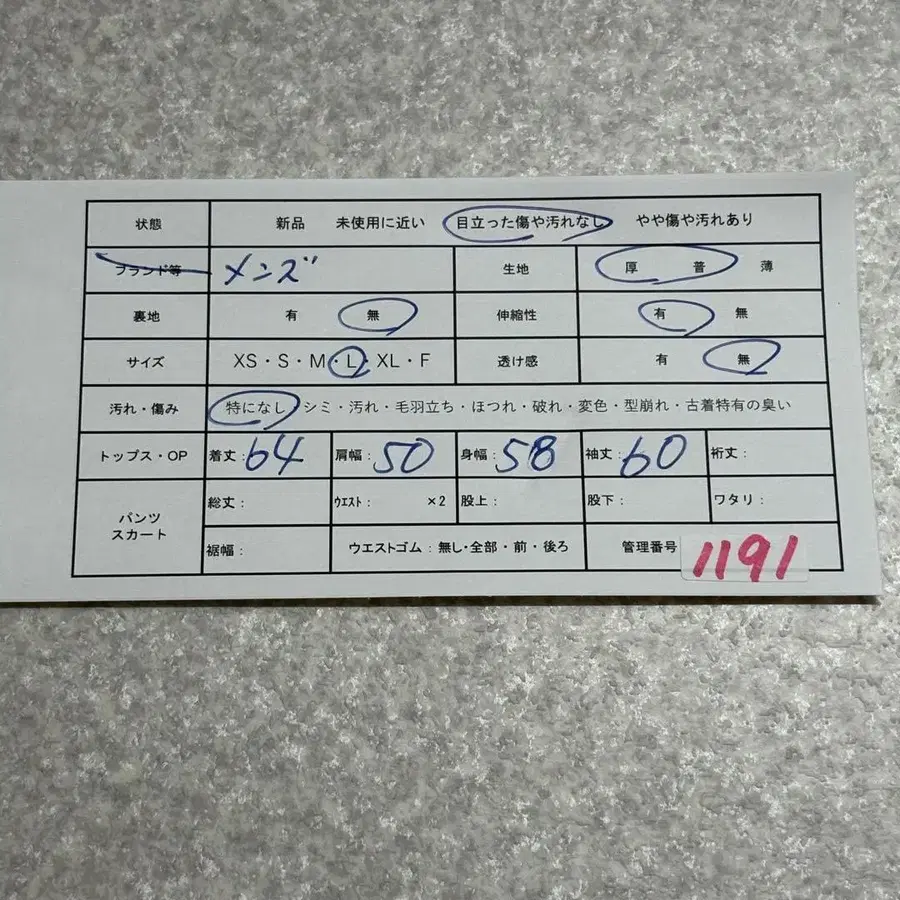 状態 新品 未使用に近い 目立った傷や汚れなし やや傷や汚れあり
ブランド等 メンズ 生地 厚 普 薄
裏地 有 無 伸縮性 有 無
サイズ XS・S・M・L・XL・F 透け感 有 無
汚れ・傷み 特になし・シミ・汚れ・毛羽立ち・ほつれ・破れ・変色・型崩れ・古着特有の臭い
トップス・OP 着丈:64 肩幅:50 身幅:58 袖丈:60 裄丈:
パンツ
スカート
総丈: ウエスト: ×2 股上: 股下: ワタリ:
裾幅: ウエストゴム:無し・全部・前・後ろ 管理番号 1191